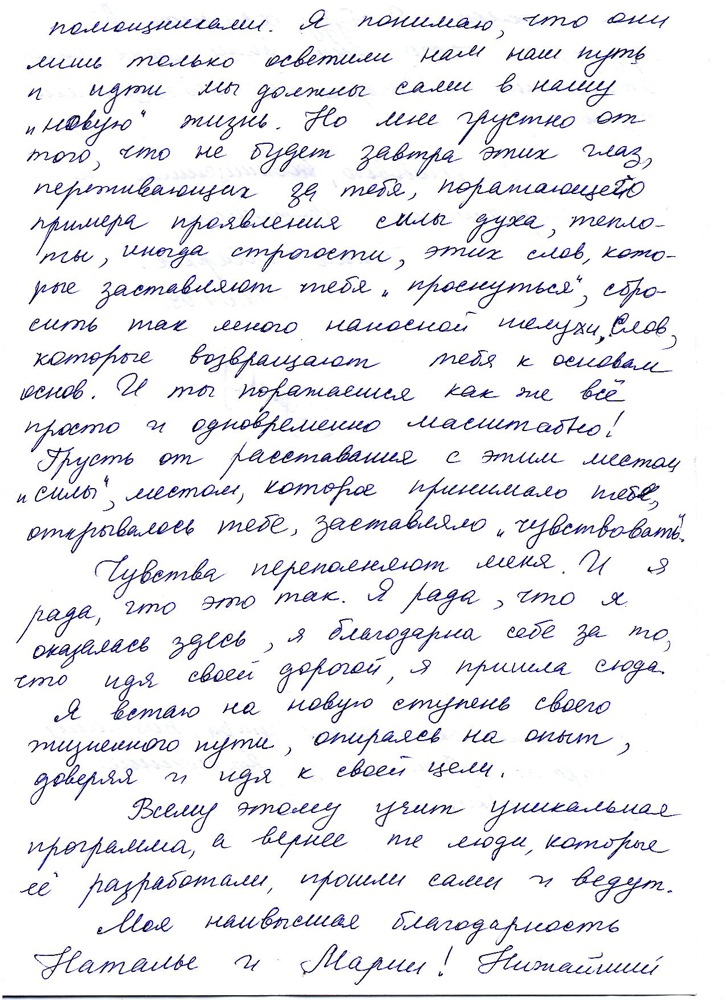 помощниками. Я понимаю, что они
лишь только осветили нам наш путь
и идти мы должны сами в нашу
„новую" жизнь. Но мне грустно от
того, что не будет завтра этих глаз,
переживающих за тебя, поражающего
примера проявления силы духа, тепло-
ты, иногда строгости, этих слов, кото-
рые заставляют тебя „проснуться", сбро-
сить так много наносной шелухи, слов,
которые возвращают тебя к основам
основ. И ты поражаешся как же всё
просто и одновременно масштабно!
Грусть от расставания с этим местом
„силы", местом, которое принимало тебя,
открывалось тебе, заставляло „чувствовать".
Чувства переполняют меня. И я
рада, что это так. Я рада, что я
оказалась здесь, я благодарна себе за то,
что идя своей дорогой, я пришла сюда.
Я встаю на новую ступень своего
жизненного пути, опираясь на опыт,
доверяя и идя к своей цели.
Всему этому учит уникальная
программа, а вернее те люди, которые
её разработали, прошли сами и ведут.
Моя наивысшая благодарность
Наталье и Марии! Нижайший